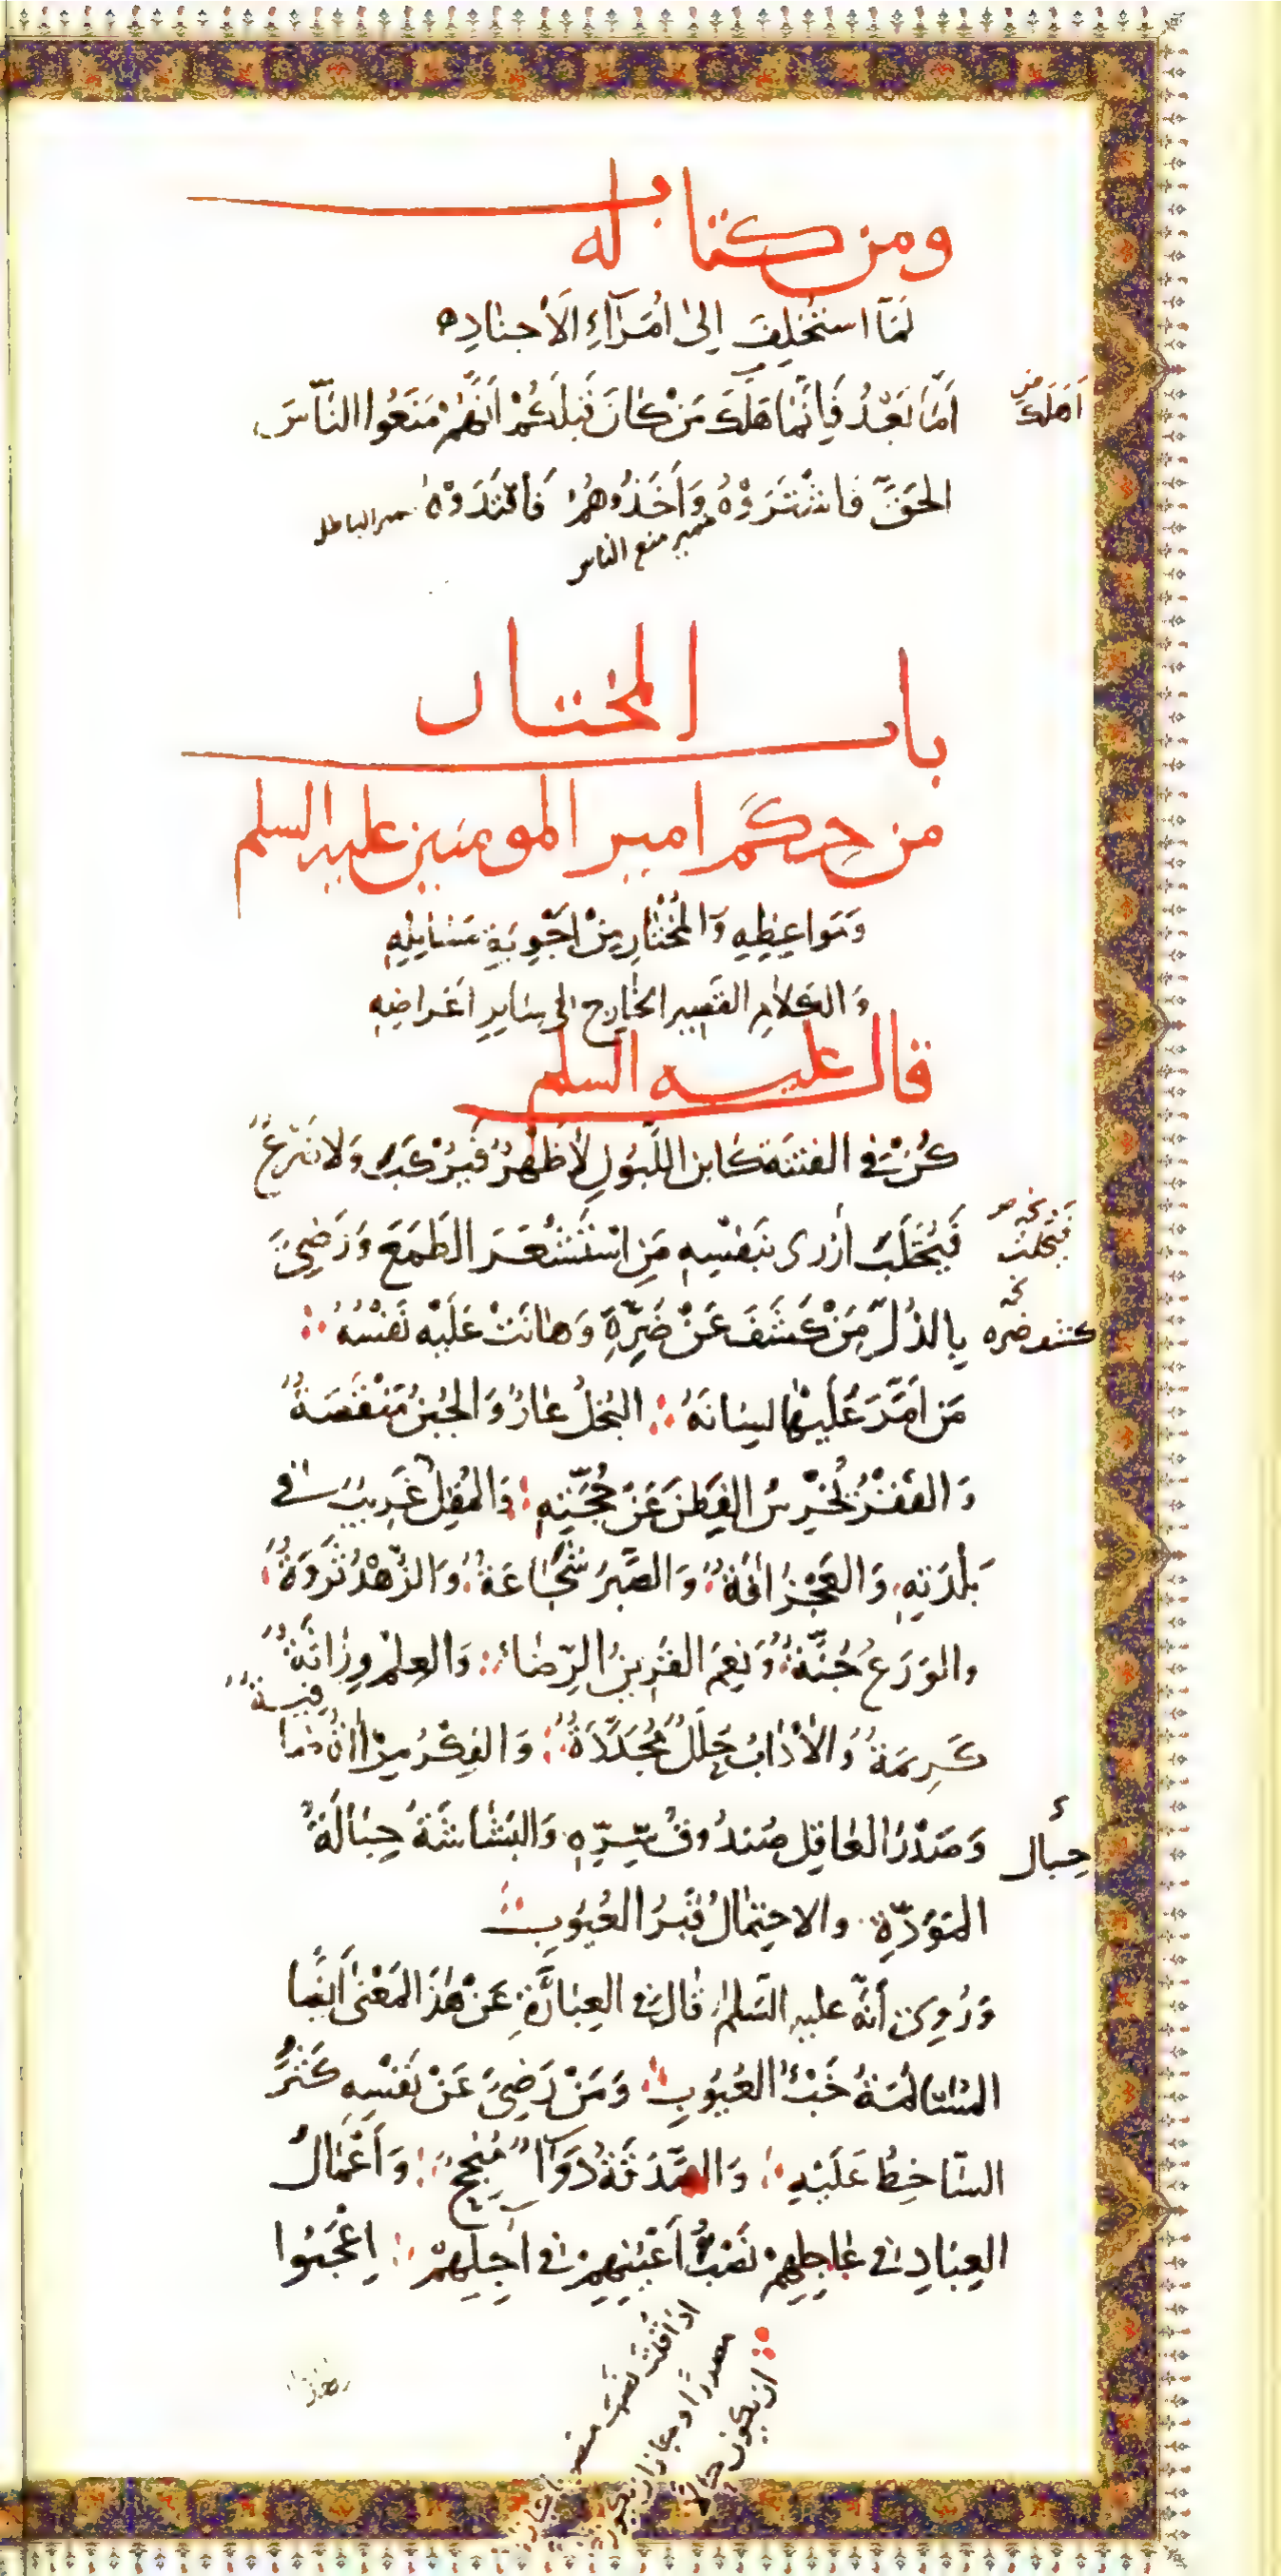 ومن كتاب له
لَمَّا اسْتُخْلِفَ إِلىٰ أُمَرَآءِ الْأَجنادِ ه
أَمَّا بَعْدُ فَإِنَّمَا هَلَكَ مَنْ كَانَ قَبْلَكُمْ أَنَّهُمْ مَنَعُوا النَّاسَ
اَهْلَكَ
الْحَقَّ فَاشْتَرَوْهُ وَأَخَذُوهُمْ فَاقْتَدَوْهُ
ضمير الباطل
ضمير منع الناس
باب المختار
من حِكَم امير المومنين عليه السلم
وَمَواعِظِهِ وَالْمُخْتَارِ مِنْ اَجْوِبَةِ مَسَايِلِهِ
وَالكَلامِ القَصِيرِ الخَارِجِ في سَايرِ اَغْراضِهِ
قال عليه السلم
كُنْ في الفتنَةِ كَابنِ اللَّبُونِ لَا ظَهْرٌ فَيُرْكَبَ وَلَا ضَرْعٌ
فَيُحْلَبَ أَزْرى بِنَفْسِهِ مَنِ اسْتَشْعَرَ الطَّمَعَ وَرَضِيَ
فَيُحْتَلَبَ
بِالذُّلِّ مَنْ كَشَفَ عَنْ ضُرِّهِ وَهَانَتْ عَلَيْهِ نَفْسُهُ
كشف ضره
مَن اَمَّرَ عَلَيْهَا لِسَانَهُ البُخلُ عَارٌ وَالجُبنُ مَنْقَصَةٌ
وَالفَقْرُ يُخْرِسُ الفَطِنَ عَنْ حُجَّتِهِ وَالمُقِلُّ غَرِيبٌ في
بَلْدَتِهِ وَالعَجْزُ اٰفَةٌ وَالصَّبرُ شُجَاعَةٌ وَالزُّهْدُ ثَرْوَةٌ
والوَرَعُ جُنَّةٌ وَنِعمَ القَرِينُ الرِّضَاءُ وَالعِلْمُ وِرَاثَةٌ
كَرِيمَةٌ وَالاٰدَابُ حُلَلٌ مُجَدَّدَةٌ وَالفِكْرُ مِرْاٰةٌ صَافِيَةٌ
وَصَدْرُ العَاقِلِ صُندُوقُ سِرِّهِ وَالبَشَاشَةُ حِبَالَةُ
حِبال
المَوَدَّةِ والاحتِمَالُ قَبرُ العُيُوبِ
وَرُوِيَ أَنَّهُ عليه السَّلم قَالَ في العِبَارَةِ عَنْ هٰذَا المَعْنىٰ أَيضًا
المُسَالَمَةُ خَبْءُ العُيُوبِ وَمَنْ رَضِيَ عَنْ نَفْسِهِ كَثُرَ
السَّاخِطُ عَلَيْهِ وَالصَّدَقَةُ دَوَآءٌ مُنْجِحٌ وَأَعْمَالُ
العِبَادِ في عَاجِلِهِمْ نُصْبُ أَعْيُنِهِمْ في اٰجِلِهِمْ اِعْجَبُوا
اذا قلت نصب
مصدرا و
ان يكون